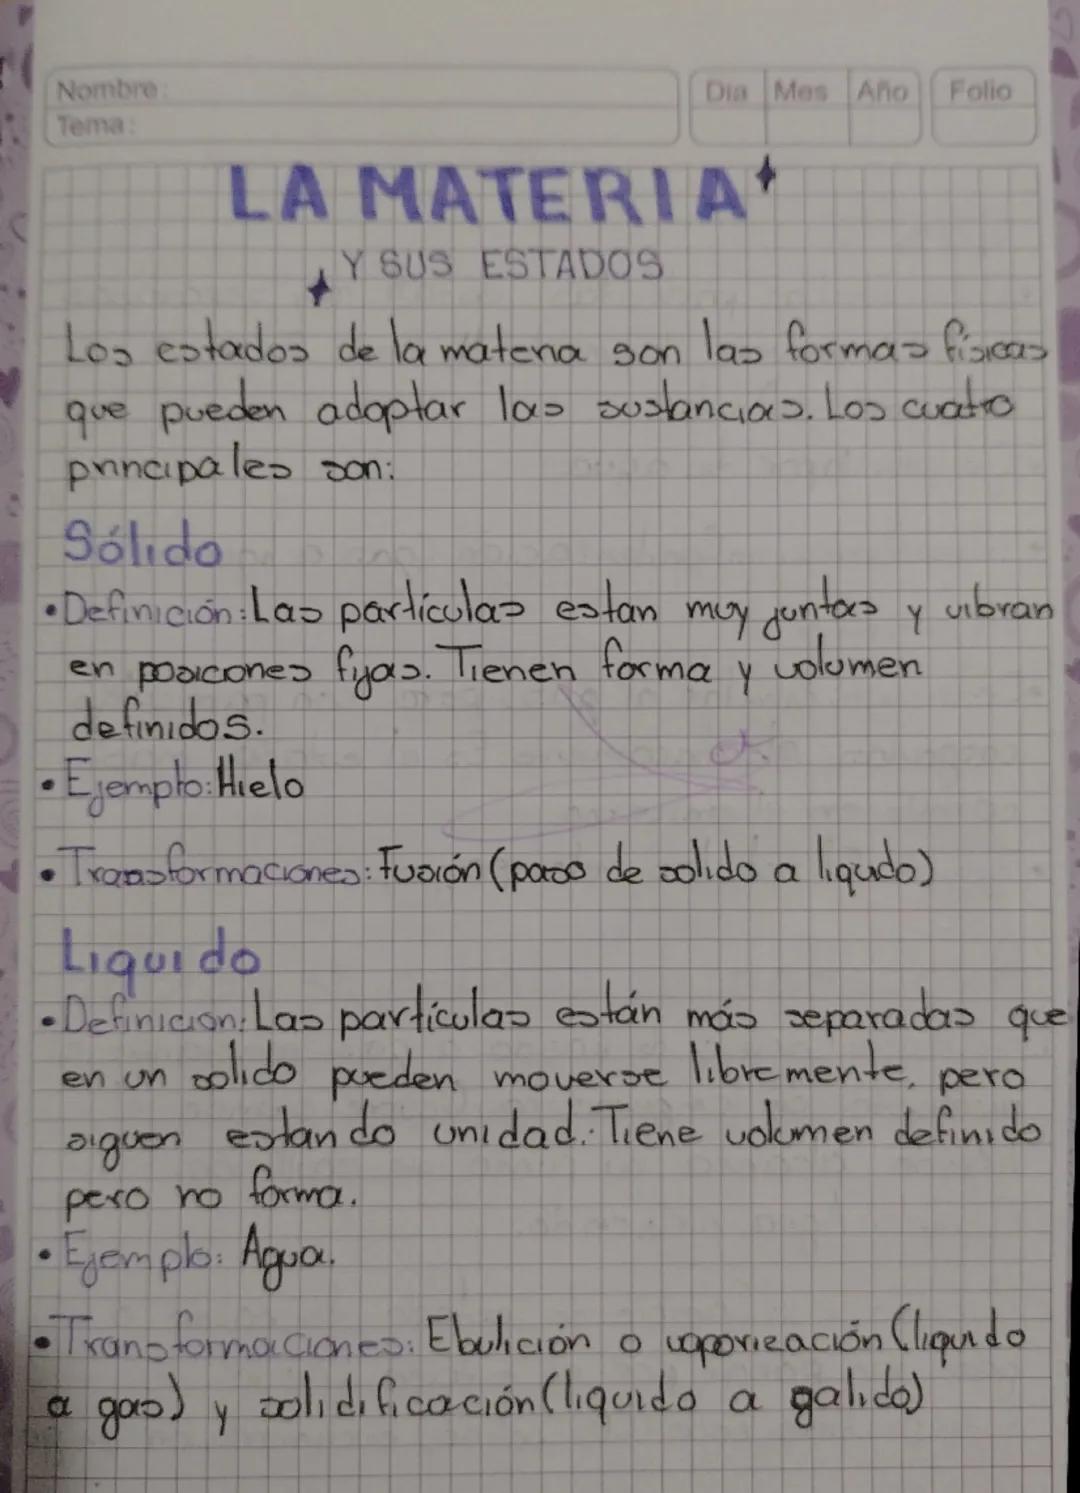 Nombre:
Tema:
Dia Mes Año Folio
LA MATERIA
Y SUS ESTADOS
Los estados de la materia son las formas físicas
que pueden adoptar las sustancias. Los cuatro
principales son:
Sólido
• Definición: Las partículas estan muy juntas y vibran
en posicones fijas. Tienen forma y volumen
definidos.
• Ejemplo: Hielo
• Transformaciones: Fusión (paso de solido a liqudo)
Liquido
• Definición: Las partículas están más separadas que
en un solido pueden moverse libremente, pero
siguen estando unidad. Tiene volumen definido
pero no forma.
• Ejemplo: Agua.
• Transformaciones: Ebulición o vaporización (liquido
a gas) y solidificación (liquido a galido)